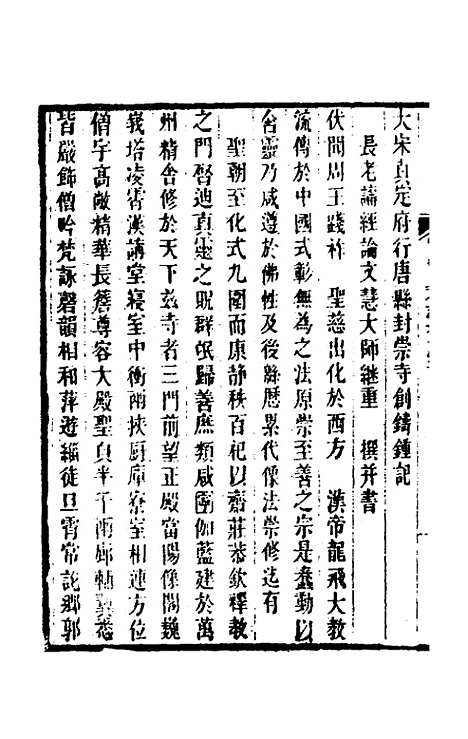 大宋真定府行唐縣封崇寺創鑄鍾記
長老論經論文慧大師繼重　撰并書
伏聞周王踐祚　聖慈出化於西方　漢帝龍飛大教
流傳於中國式彰無為之法原崇至善之宗是蠢動以
含靈乃咸遵於佛性及後緜歷累代像法崇修迄有
聖朝至化式九圍而康靜秩百祀以齋莊恭欽釋教
之門啓迪真靈之貺群氓歸善庶類咸圖伽藍建於萬
州精舍修於天下茲寺者三門前望正殿當陽像閣巍
峩塔凌霄漢講堂寢室中衝兩挾厨庫寮室相連方位
僧宇高敞精華長簷尊容大殿聖貟半千兩廊輔翼悉
皆嚴飾僧吟梵詠磬韻相和萍遊緇徒旦霄常詫鄉郭